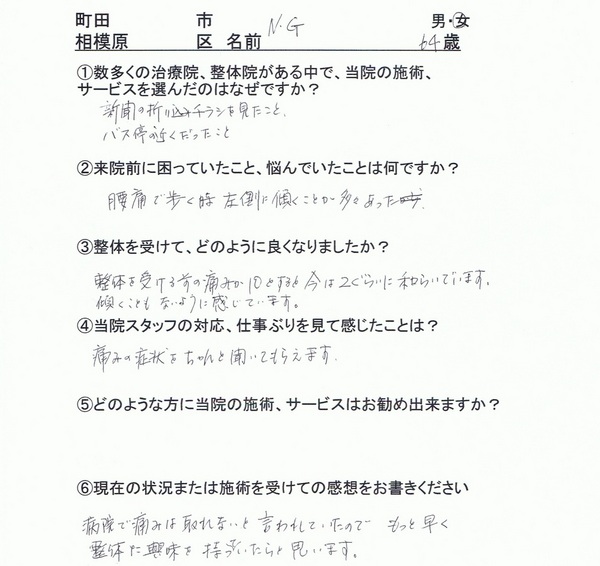 町田 市 N.G 男・女
相模原 区 名前 64歳
①数多くの治療院、整体院がある中で、当院の施術、
サービスを選んだのはなぜですか？
新聞の折り込みチラシを見たこと、
バス停の近くだったこと
②来院前に困っていたこと、悩んでいたことは何ですか？
腰痛で歩く時 左側に傾くことが多々あった
③整体を受けて、どのように良くなりましたか？
整体を受ける前の痛みが10とすると今は2ぐらいに和らいでいます。
傾くこともないように感じています。
④当院スタッフの対応、仕事ぶりを見て感じたことは？
痛みの症状をちゃんと聞いてもらえます.
⑤どのような方に当院の施術、サービスはお勧め出来ますか？
⑥現在の状況または施術を受けての感想をお書きください
病院で痛みは取れないと言われていたので もっと早く
整体に興味を持っていたらと思います。